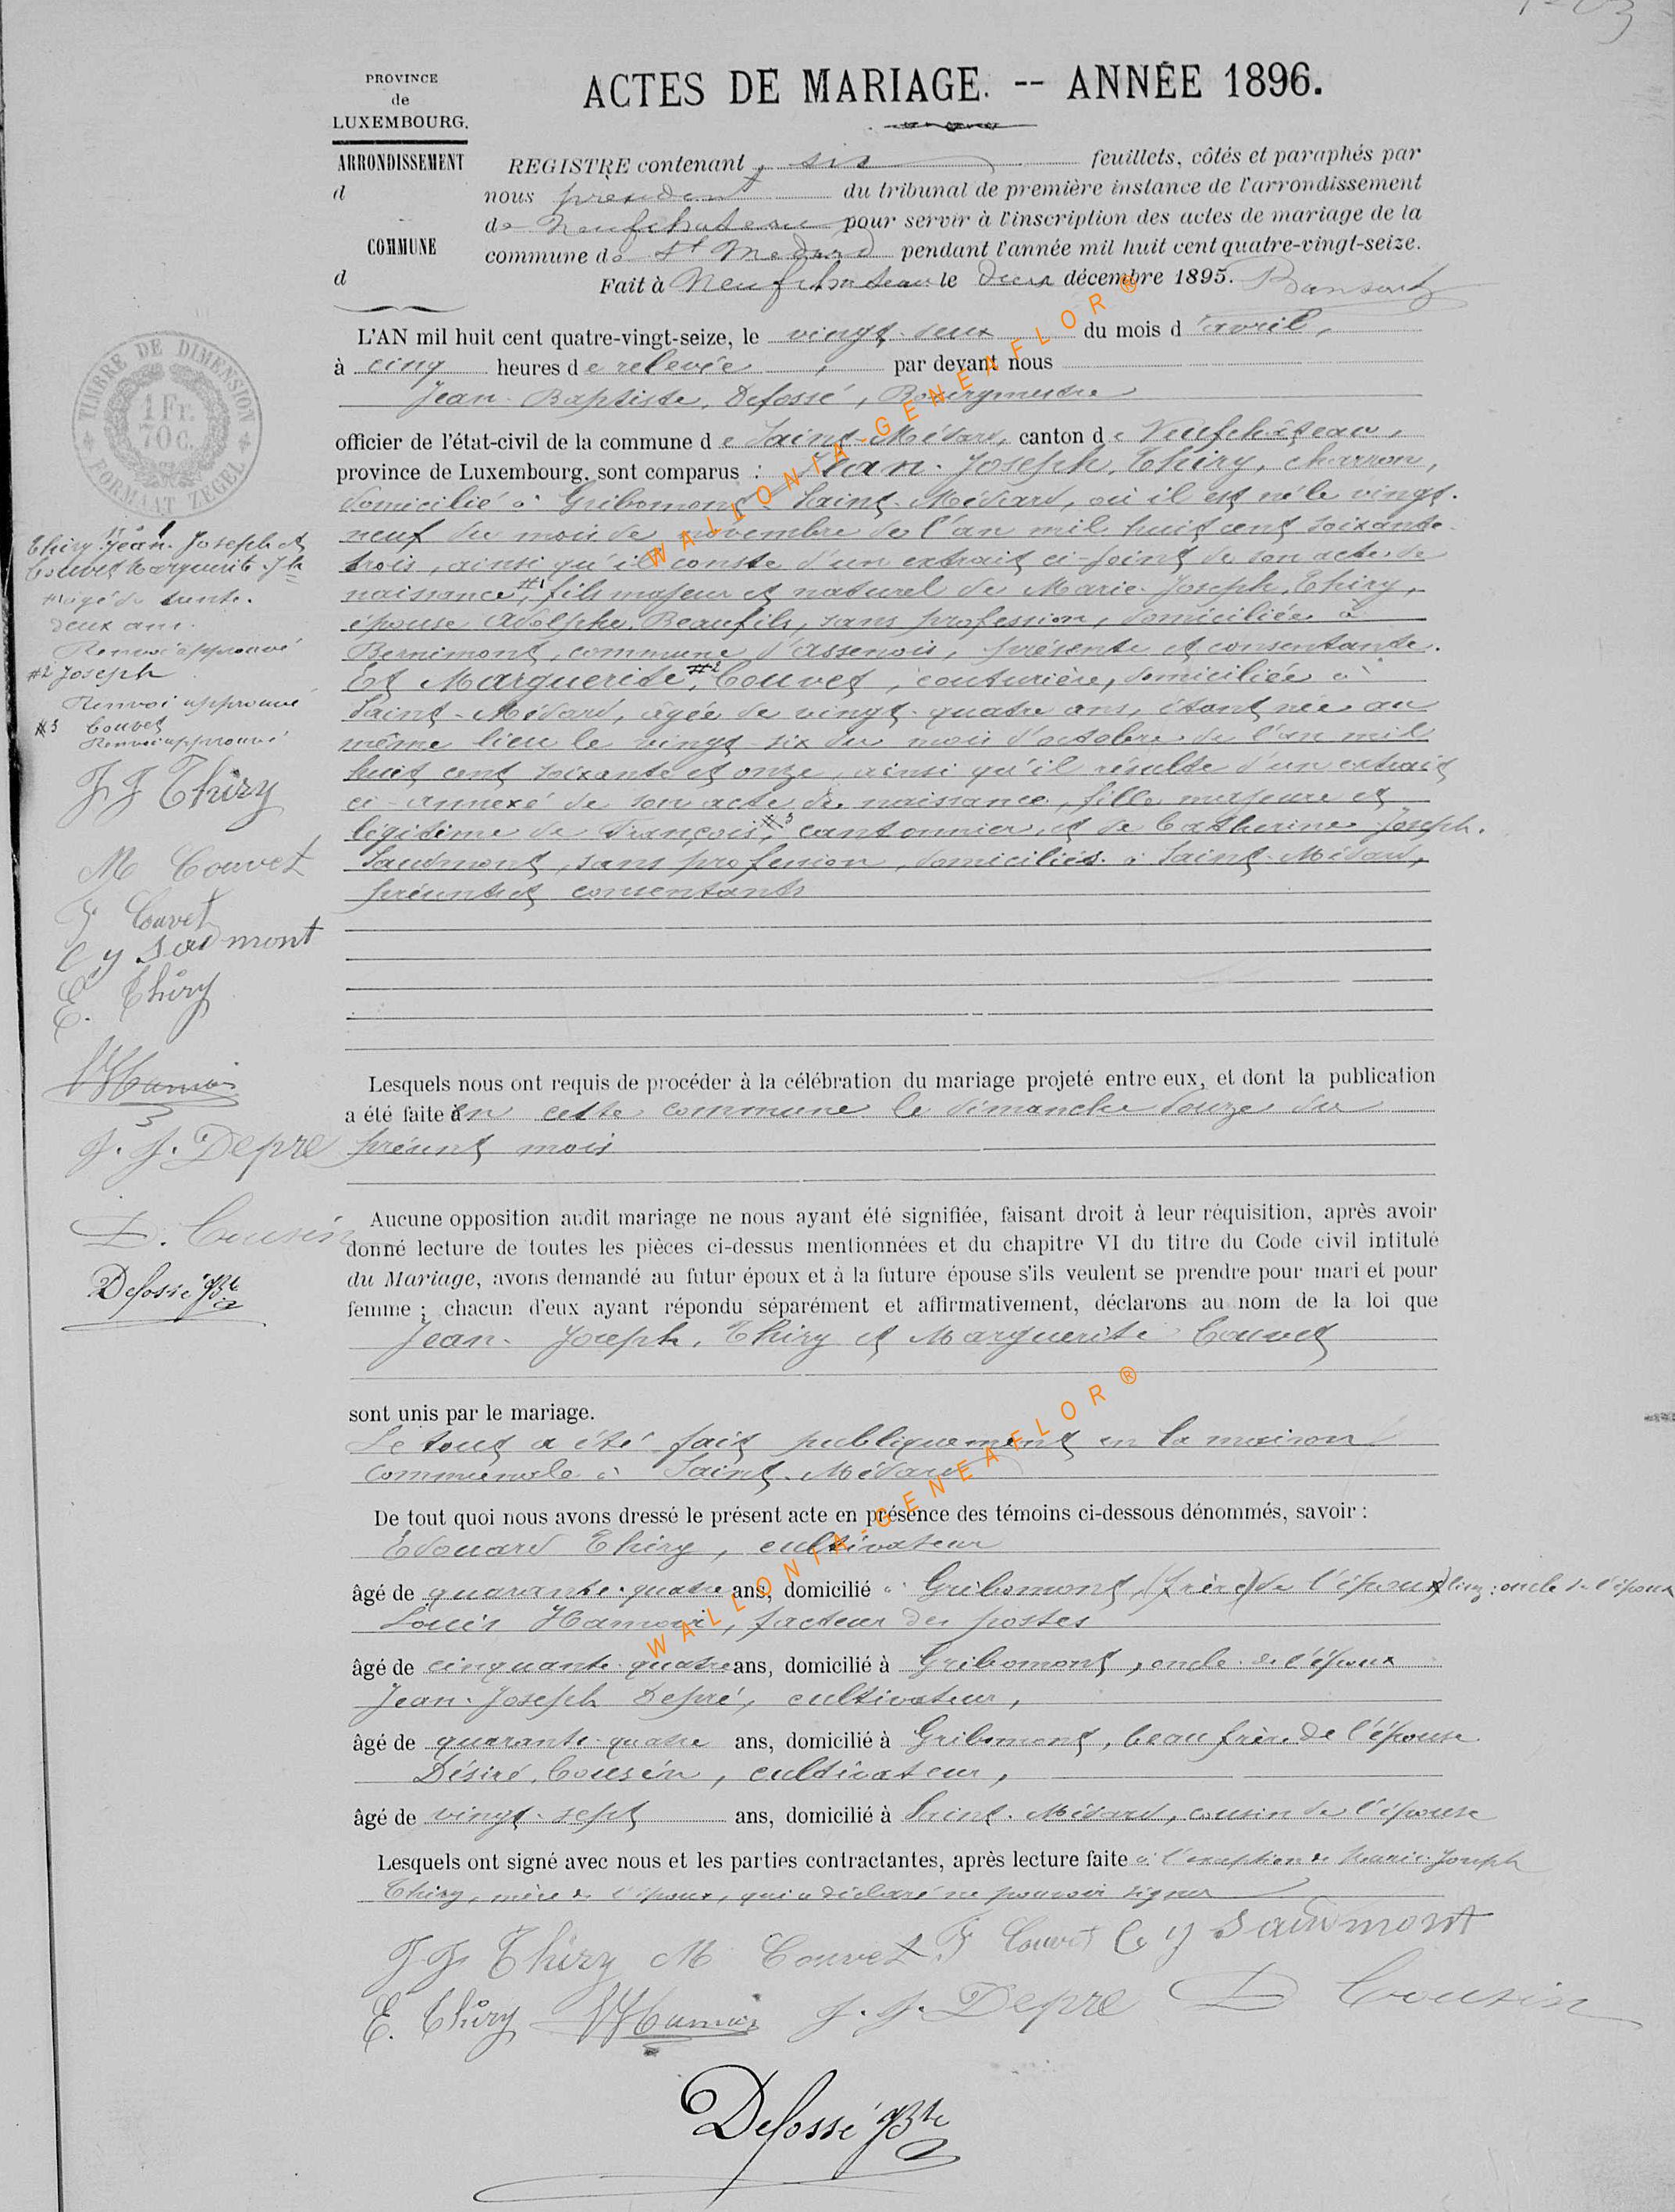 PROVINCE
de
LUXEMBOURG.
ARRONDISSEMENT
d
COMMUNE
d
ACTES DE MARIAGE. -- ANNÉE 1896.
REGISTRE contenant six feuillets, côtés et paraphés par
nous président du tribunal de première instance de l'arrondissement
de Neufchateau pour servir à l'inscription des actes de mariage de la
commune de St Medard pendant l'année mil huit cent quatre-vingt-seize.
Fait à Neufchateau le deux décembre 1895.
L'AN mil huit cent quatre-vingt-seize, le vingt-deux du mois d'avril,
à cinq heures de relevée, par devant nous
Jean-Baptiste, Defossé, Bourgmestre
officier de l'état-civil de la commune de Saint-Médard, canton de Neufchâteau,
province de Luxembourg, sont comparus : Jean-Joseph, Thiry, charron,
domicilié à Gribomont-Saint-Médard, où il est né le vingt-
neuf du mois de novembre de l'an mil huit cent soixante-
trois, ainsi qu'il conste d'un extrait ci-joint de son acte de
naissance, #1 fils majeur et naturel de Marie-Joseph, Thiry,
épouse Adolphe, Beaufils, sans profession, domiciliée à
Bernimont, commune d'Assenois, présente et consentante.
Et Marguerite, #2 Couvet, couturière, domiciliée à
Saint-Médard, âgée de vingt-quatre ans, étant née au
même lieu le vingt-six du mois d'octobre de l'an mil
huit cent soixante et onze, ainsi qu'il résulte d'un extrait
ci-annexé de son acte de naissance, fille majeure et
légitime de François, #3 cantonnier, et de Catherine-Joseph.
Saudmont, sans profession, domiciliés à Saint-Médard,
présents et consentants
TIMBRE DE DIMENSION
1 Fr.
70 C.
FORMAAT ZEGEL
N° 1
Thiry Jean-Joseph et
Couvet Marguerite-Jh
#1 âgé de trente-
deux ans.
Renvoi approuvé
#2 Joseph
Renvoi approuvé
#3 Couvet
Renvoi approuvé
J J Thiry
M Couvet
F Couvet
C y Saudmont
E. Thiry
J. J. Depre
D. Cousin
Defossé JBte
Lesquels nous ont requis de procéder à la célébration du mariage projeté entre eux, et dont la publication
a été faite en cette commune le dimanche douze du
présent mois
Aucune opposition audit mariage ne nous ayant été signifiée, faisant droit à leur réquisition, après avoir
donné lecture de toutes les pièces ci-dessus mentionnées et du chapitre VI du titre du Code civil intitulé
du Mariage, avons demandé au futur époux et à la future épouse s'ils veulent se prendre pour mari et pour
femme ; chacun d'eux ayant répondu séparément et affirmativement, déclarons au nom de la loi que
Jean-Joseph, Thiry et Marguerite Couvet
sont unis par le mariage.
Le tout a été fait publiquement en la maison
communale à Saint-Médard
De tout quoi nous avons dressé le présent acte en présence des témoins ci-dessous dénommés, savoir :
Edouard Thiry, cultivateur
âgé de quarante-quatre ans, domicilié à Gribomont, (frère) de l'époux) lisez : oncle de l'époux
Louis Hamoir, facteur des postes
âgé de cinquante-quatre ans, domicilié à Gribomont, oncle de l'époux
Jean-Joseph Depré, cultivateur,
âgé de quarante-quatre ans, domicilié à Gribomont, beau frère de l'épouse
Désiré, Cousin, cultivateur,
âgé de vingt-sept ans, domicilié à Saint-Médard, cousin de l'épouse
Lesquels ont signé avec nous et les parties contractantes, après lecture faite à l'exception de Marie-Joseph
Thiry, mère de l'époux, qui a déclaré ne pouvoir signer
J J Thiry M Couvet F Couvet C y Saudmont
E. Thiry J. J. Depre D Cousin
Defossé JBte
WALLONIA-GENEAFLOR®
WALLONIA-GENEAFLOR®